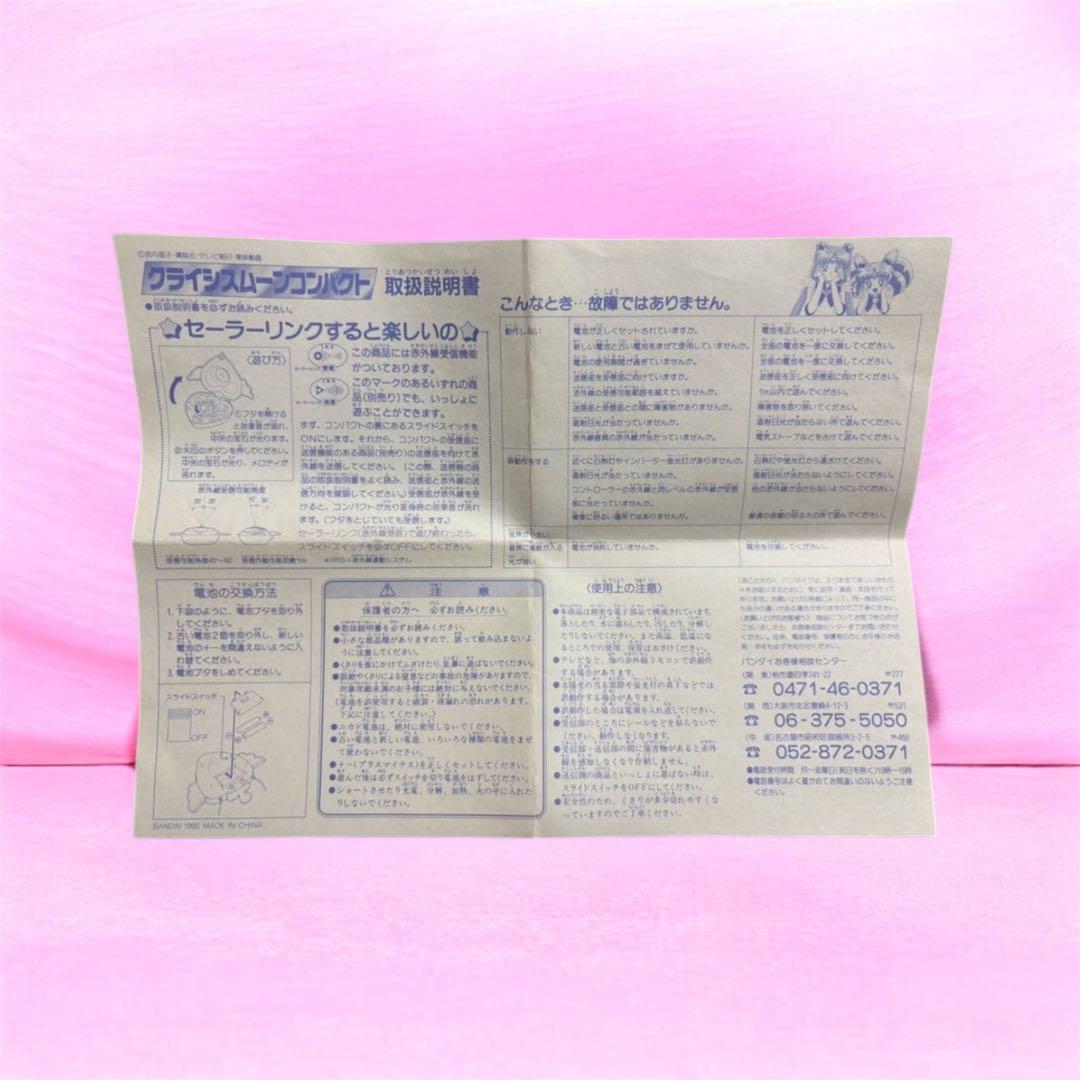 ©武内直子・講談社・テレビ朝日・東映動画
クライシスムーンコンパクト
とりあつかいせつめいしょ
取扱説明書
●取扱説明書を必ずお読みください。
セーラーリンクすると楽しいの
〈遊び方〉
①フタを開けると効果音が流れ、中央の宝石が光ります。
②矢印のボタンを押してください。
中央の宝石が光り、メロディが流れます。
赤外線受信可能角度
受信可能距離約1m
この商品には赤外線受信機能
がついております。
このマークのあるいずれの商
品(別売り)でも、いっしょに
遊ぶことができます。
まず、コンパクトの裏にあるスライドスイッチを
ONにします。それから、コンパクトの受信部に
送信機能のある商品(別売り)の送信部を向けて赤
外線を送信してください。(この際、送信側の商
品の取扱説明書をよく読み、送信部と赤外線の送
信方向を確認してください。)受信部が赤外線を受
けると、コンパクトが光り変身時の効果音が流れ
ます。(フタをとじていても受信します。)
セーラーリンク(赤外線受信)で遊び終わったら、
スライドスイッチを必ずOFFにしてください。
*IRS=赤外線連動システム
こんなとき…故障ではありません。
動作しない
電池が正しくセットされていますか。
電池を正しくセットしてください。
新しい電池と古い電池をまぜて使用していませんか。
全部の電池を一度に交換してください。
電池の使用期間が過ぎていませんか。
全部の電池を一度に交換してください。
送信部を受信部に向けていますか。
送信部を正しく受信部に向けてください。
赤外線の受信可能範囲を越えていませんか。
1m以内で遊んでください。
送信部と受信部との間に障害物がありませんか。
障害物を取り除いてください。
直射日光が当たっていませんか。
直射日光が当たらない所で遊んでください。
赤外線器具の赤外線が当たっていませんか。
電気ストーブなどをさけて遊んでください。
誤動作をする
近くに白熱灯やインバーター蛍光灯がありませんか。
白熱灯や蛍光灯から遠ざけてください。
直射日光が当たっていませんか。
直射日光が当たらないようにしてください。
コントローラーの赤外線と同レベルの赤外線が受信
部に当たっていませんか。
他の赤外線が当たらないようにしてください。
極度に明るい場所ではありませんか。
普通の部屋の明るさの所で遊んでください。
音声が小さい
音声に雑音が入る
光が弱い
電池が消耗していませんか。
電池を交換してください。
電池の交換方法
1.下図のように、電池ブタを取り外
してください。
2.古い電池2個を取り外し、新しい
電池の+-を間違えないように入
れ替えてください。
3.電池ブタをしめてください。
スライドスイッチ
ON
OFF
BANDAI 1995 MADE IN CHINA
注意
保護者の方へ 必ずお読みください。
●取扱説明書を必ずお読みください。
●小さな部品類がありますので、誤って飲み込まないよ
うに注意してください。
●くさりを首にかけてふざけたり、乱暴に遊ばないでください。
●誤飲やくさりによる窒息などの事故の危険がありますので、
対象年齢未満のお子様には絶対に与えないでください。
〈電池を誤使用すると破裂・液漏れの恐れがあります。
下記に注意してください。〉
●ニカド電池は、絶対に使用しないでください。
●古い電池と新しい電池、いろいろな種類の電池をまぜ
て使わないでください。
●+-(プラスマイナス)を正しくセットしてください。
●遊んだ後は必ずスイッチを切り電池をはずしてください。
●ショートさせたり充電、分解、加熱、火の中に入れた
りしないでください。
〈使用上の注意〉
●本商品は精密な電子部品で構成されています。
落としたり、水に濡らしたり、汚したり、分解し
たりしないでください。また高温、低温にな
るところでの使用、保管はおさけください。
●テレビなど、他の赤外線リモコンで誤動作
する場合があります。
●太陽光の当る窓際や蛍光灯の真下などでは
誤動作する場合があります。
●誤作動した場合は電源を入れ直してください。
●受信部のところにシールなどを貼らないで
ください。動作しなくなります。
●受信部・送信部の間に障害物があると赤外
線を感知しなくなり作動しません。
●送信側の商品といっしょに遊ばない時は、
スライドスイッチをOFFにしてください。
●安全性のため、くさりが多少切れやすくな
っていますのでご了承ください。
バンダイお客様相談センター
(関 東)柏市豊四季241-22 〒277
☎ 0471-46-0371
(関 西)大阪市北区豊崎4-12-3 〒531
☎ 06-375-5050
(中 部)名古屋市昭和区御器所3-2-5 〒466
☎ 052-872-0371
●電話受付時間 月〜金曜日(祝日を除く)10時〜16時
●電話番号はよく確かめてお間違いのないようご注意
ください。